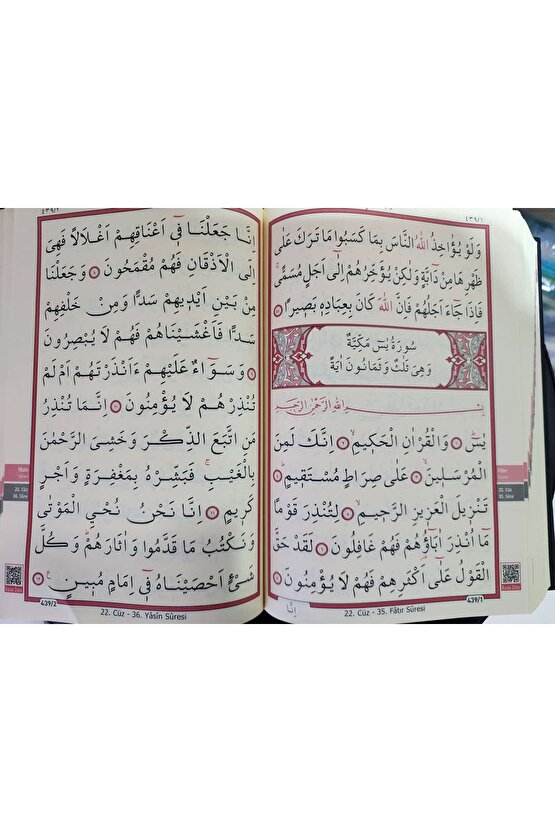 ٤٣٩/١
وَلَوْ يُؤَاخِذُ اللّٰهُ النَّاسَ بِمَا كَسَبُوا مَا تَرَكَ عَلٰى
ظَهْرِهَا مِنْ دَٓابَّةٍ وَلٰكِنْ يُؤَخِّرُهُمْ اِلٰٓى اَجَلٍ مُسَمًّىۚ
فَاِذَا جَٓاءَ اَجَلُهُمْ فَاِنَّ اللّٰهَ كَانَ بِعِبَادِه۪ بَص۪يرًا ۝
سُورَةُ يٰسٓ مَكِّيَّةٌ
وَهِىَ ثَلٰثٌ وَثَمَانُونَ اٰيَةً
بِسْمِ اللّٰهِ الرَّحْمٰنِ الرَّح۪يمِ
يٰسٓ ۝١ وَالْقُرْاٰنِ الْحَك۪يمِ ۝٢ اِنَّكَ لَمِنَ
الْمُرْسَل۪ينَ ۝٣ عَلٰى صِرَاطٍ مُسْتَق۪يمٍ ۝٤
تَنْز۪يلَ الْعَز۪يزِ الرَّح۪يمِ ۝٥ لِتُنْذِرَ قَوْمًا
مَٓا اُنْذِرَ اٰبَٓاؤُ۬هُمْ فَهُمْ غَافِلُونَ ۝٦ لَقَدْ حَقَّ
الْقَوْلُ عَلٰٓى اَكْثَرِهِمْ فَهُمْ لَا يُؤْمِنُونَ ۝٧
439/1
22. Cüz - 35. Fâtır Sûresi
اِنَّا
Fâtır
22. Cüz
35. Sûre
٤٣٩/٢
اِنَّا جَعَلْنَا ف۪ٓى اَعْنَاقِهِمْ اَغْلَالًا فَهِىَ
اِلَى الْاَذْقَانِ فَهُمْ مُقْمَحُونَ ۝٨ وَجَعَلْنَا
مِنْ بَيْنِ اَيْد۪يهِمْ سَدًّا وَمِنْ خَلْفِهِمْ
سَدًّا فَاَغْشَيْنَاهُمْ فَهُمْ لَا يُبْصِرُونَ
۝٩ وَسَوَٓاءٌ عَلَيْهِمْ ءَاَنْذَرْتَهُمْ اَمْ لَمْ
تُنْذِرْهُمْ لَا يُؤْمِنُونَ ۝١٠ اِنَّمَا تُنْذِرُ
مَنِ اتَّبَعَ الذِّكْرَ وَخَشِىَ الرَّحْمٰنَ
بِالْغَيْبِۚ فَبَشِّرْهُ بِمَغْفِرَةٍ وَاَجْرٍ
كَر۪يمٍ ۝١١ اِنَّا نَحْنُ نُحْيِ الْمَوْتٰى
وَنَكْتُبُ مَا قَدَّمُوا وَاٰثَارَهُمْۜ وَكُلَّ
شَىْءٍ اَحْصَيْنَاهُ ف۪ٓى اِمَامٍ مُب۪ينٍ ۝١٢
439/2
22. Cüz - 36. Yâsîn Sûresi
Yâsîn
22. Cüz
36. Sûre